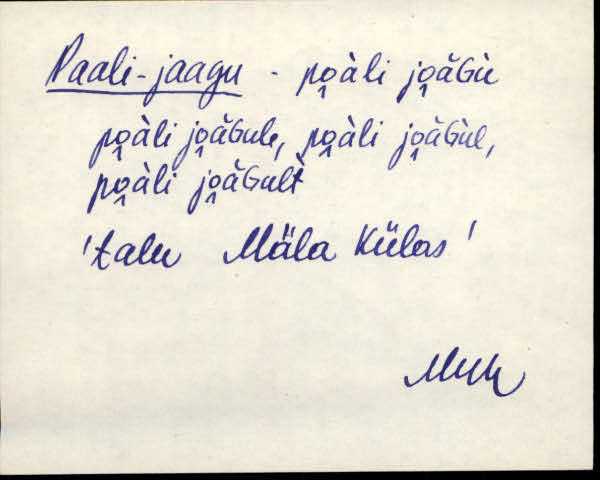 Paali-jaagu - po̭àli jo̭ăGu
po̭àli jo̭ăGule, po̭àli jo̭ăGul,
po̭àli jo̭ăGult
'talu Mäla külas'
Muh